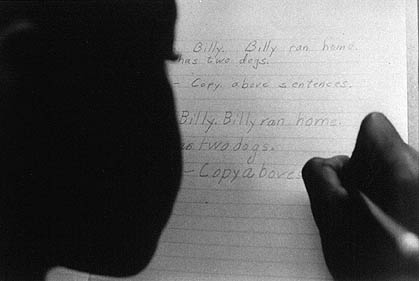 Billy. Billy ran home.
has two dogs.
- Copy above sentences.
Billy. Billy ran home.
two dogs.
- Copy above s